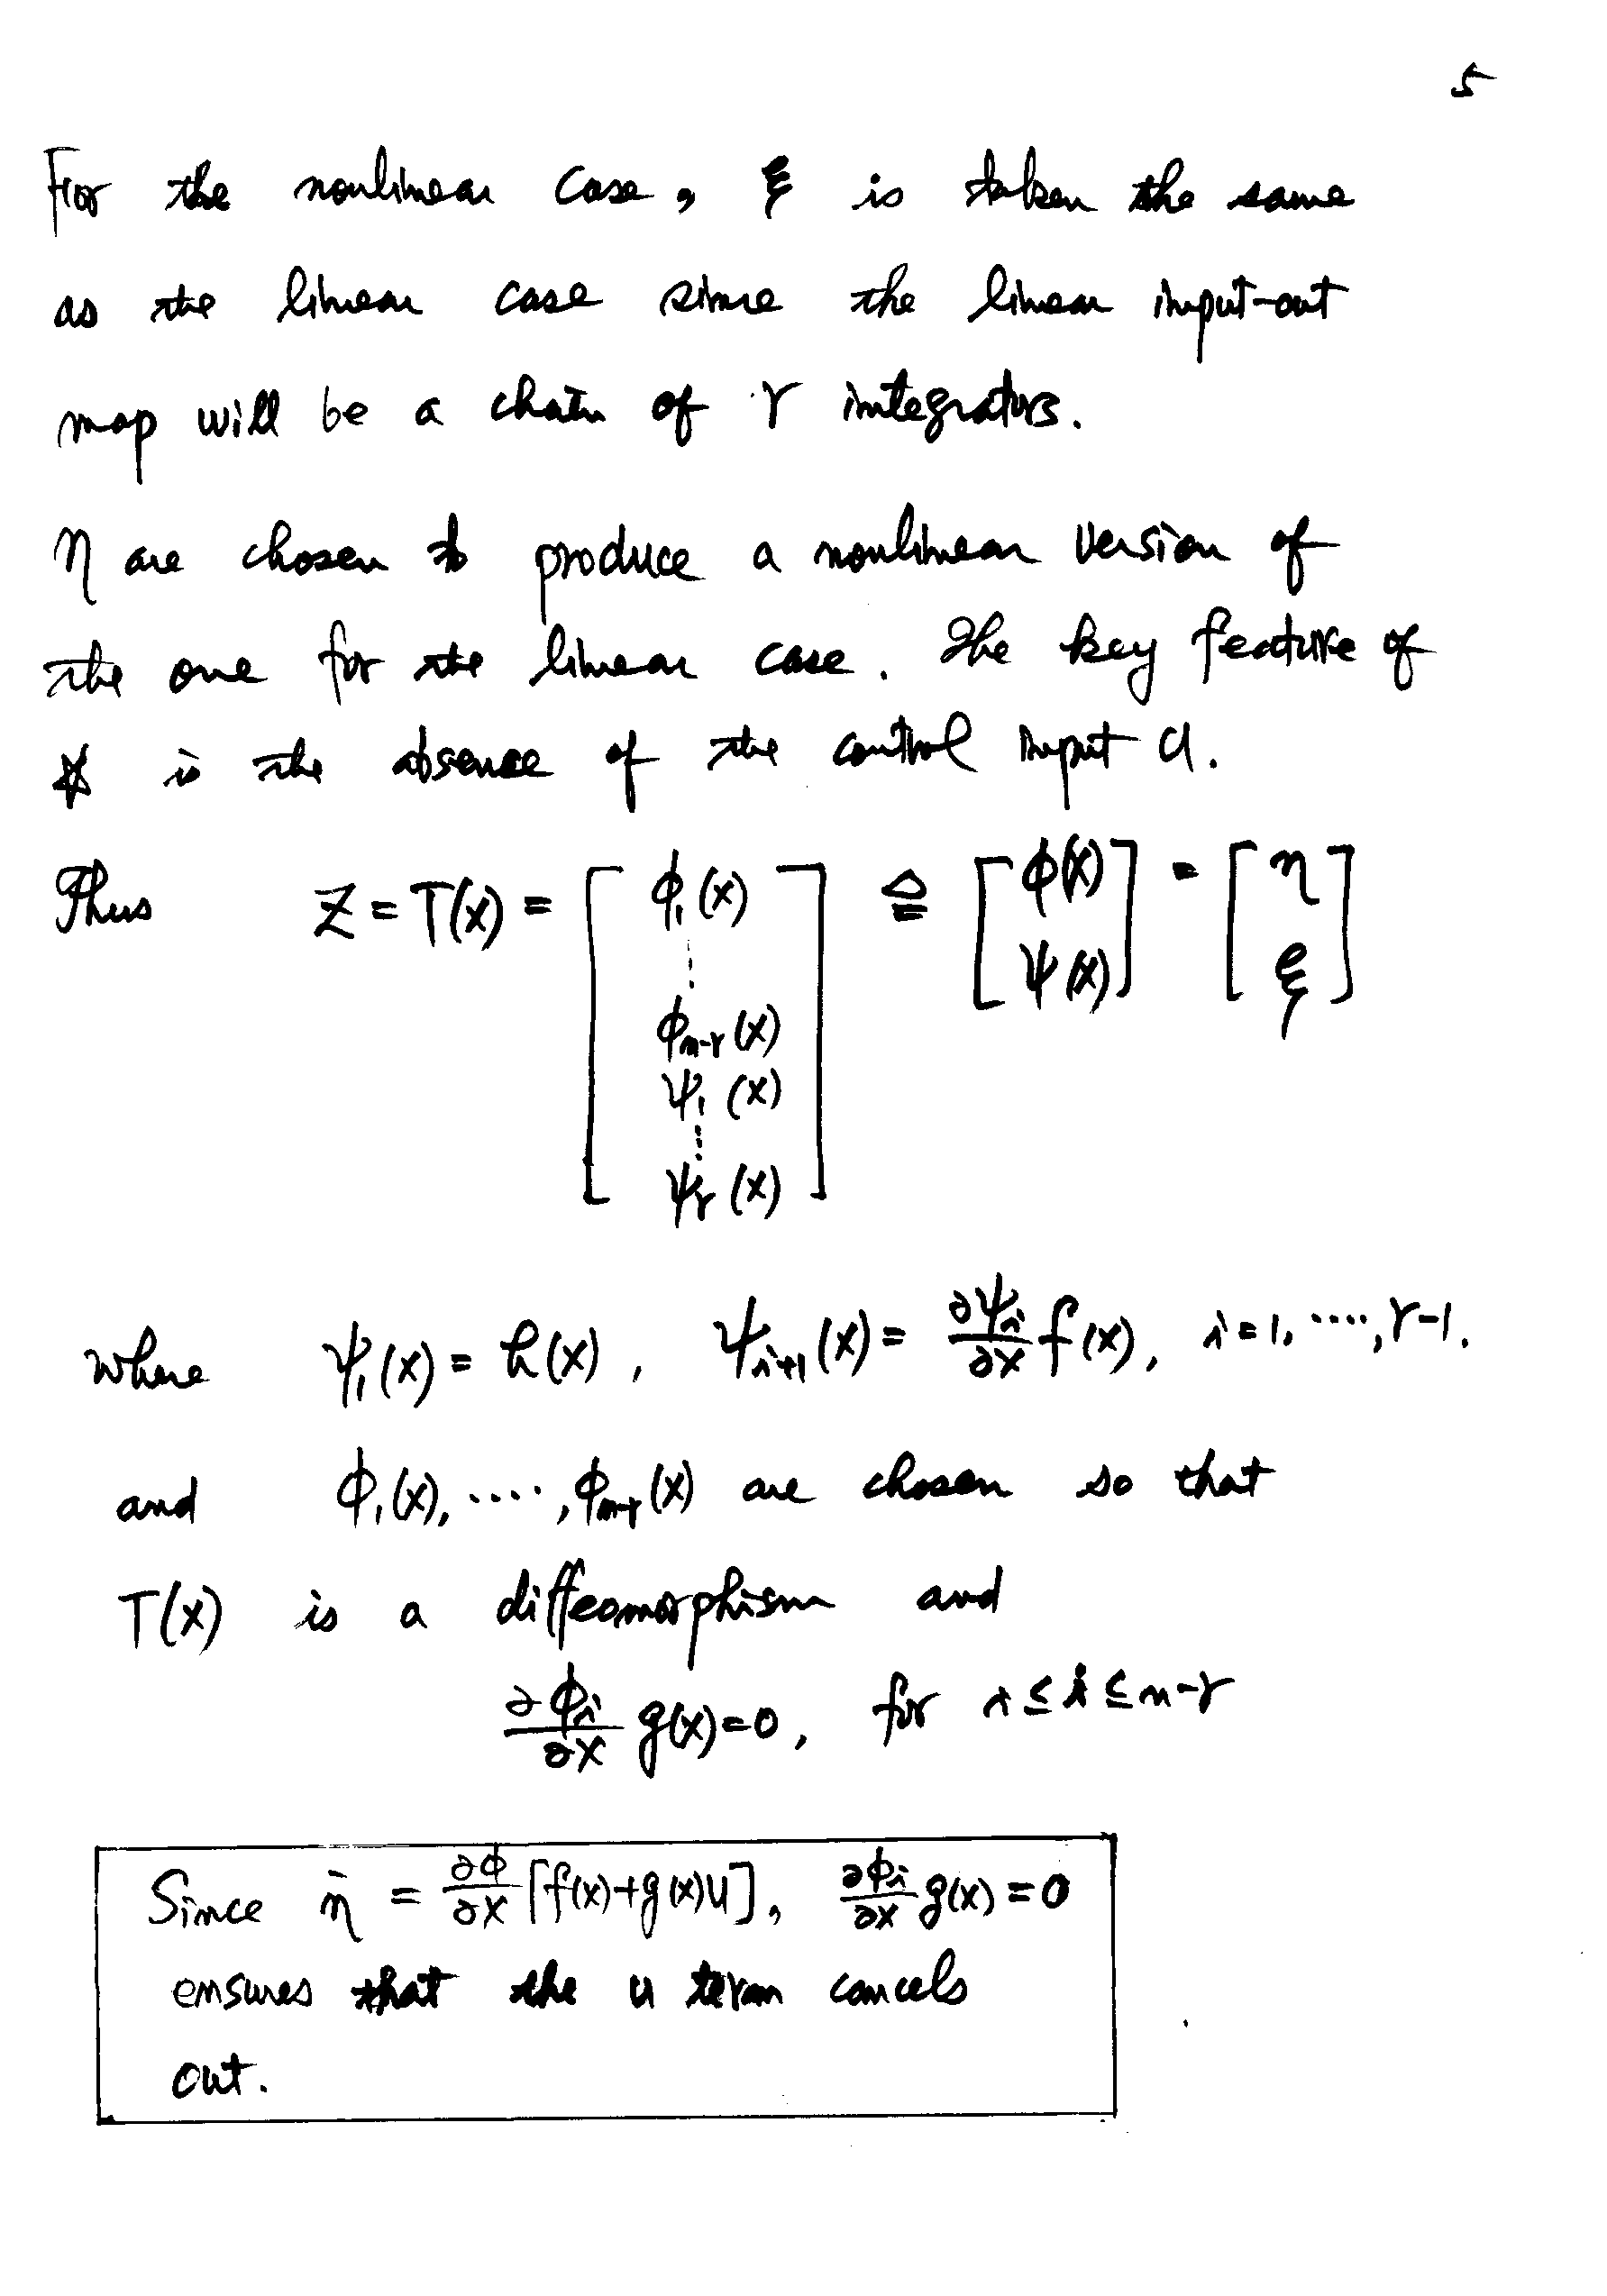 5
For the nonlinear case, ξ is taken the same
as the linear case since the linear input-out
map will be a chain of r integrators.
η are chosen to produce a nonlinear version of
the one for the linear case. The key feature of
☆ is the absence of the control input u.
Thus z = T(x) = [ϕ₁(x) ⋮ ϕₙ₋ᵣ(x) ψ₁(x) ⋮ ψᵣ(x)] ≜ [ϕ(x) ψ(x)] = [η ξ]
where ψ₁(x) = h(x), ψᵢ₊₁(x) = ∂ψᵢ/∂x f(x), i = 1, ....., r-1.
and ϕ₁(x), ....., ϕₙ₋ᵣ(x) are chosen so that
T(x) is a diffeomorphism and
∂ϕᵢ/∂x g(x) = 0, for i ≤ i ≤ n-r
Since η̇ = ∂ϕ/∂x [f(x)+g(x)u], ∂ϕᵢ/∂x g(x) = 0
ensures that the u term cancels
out.